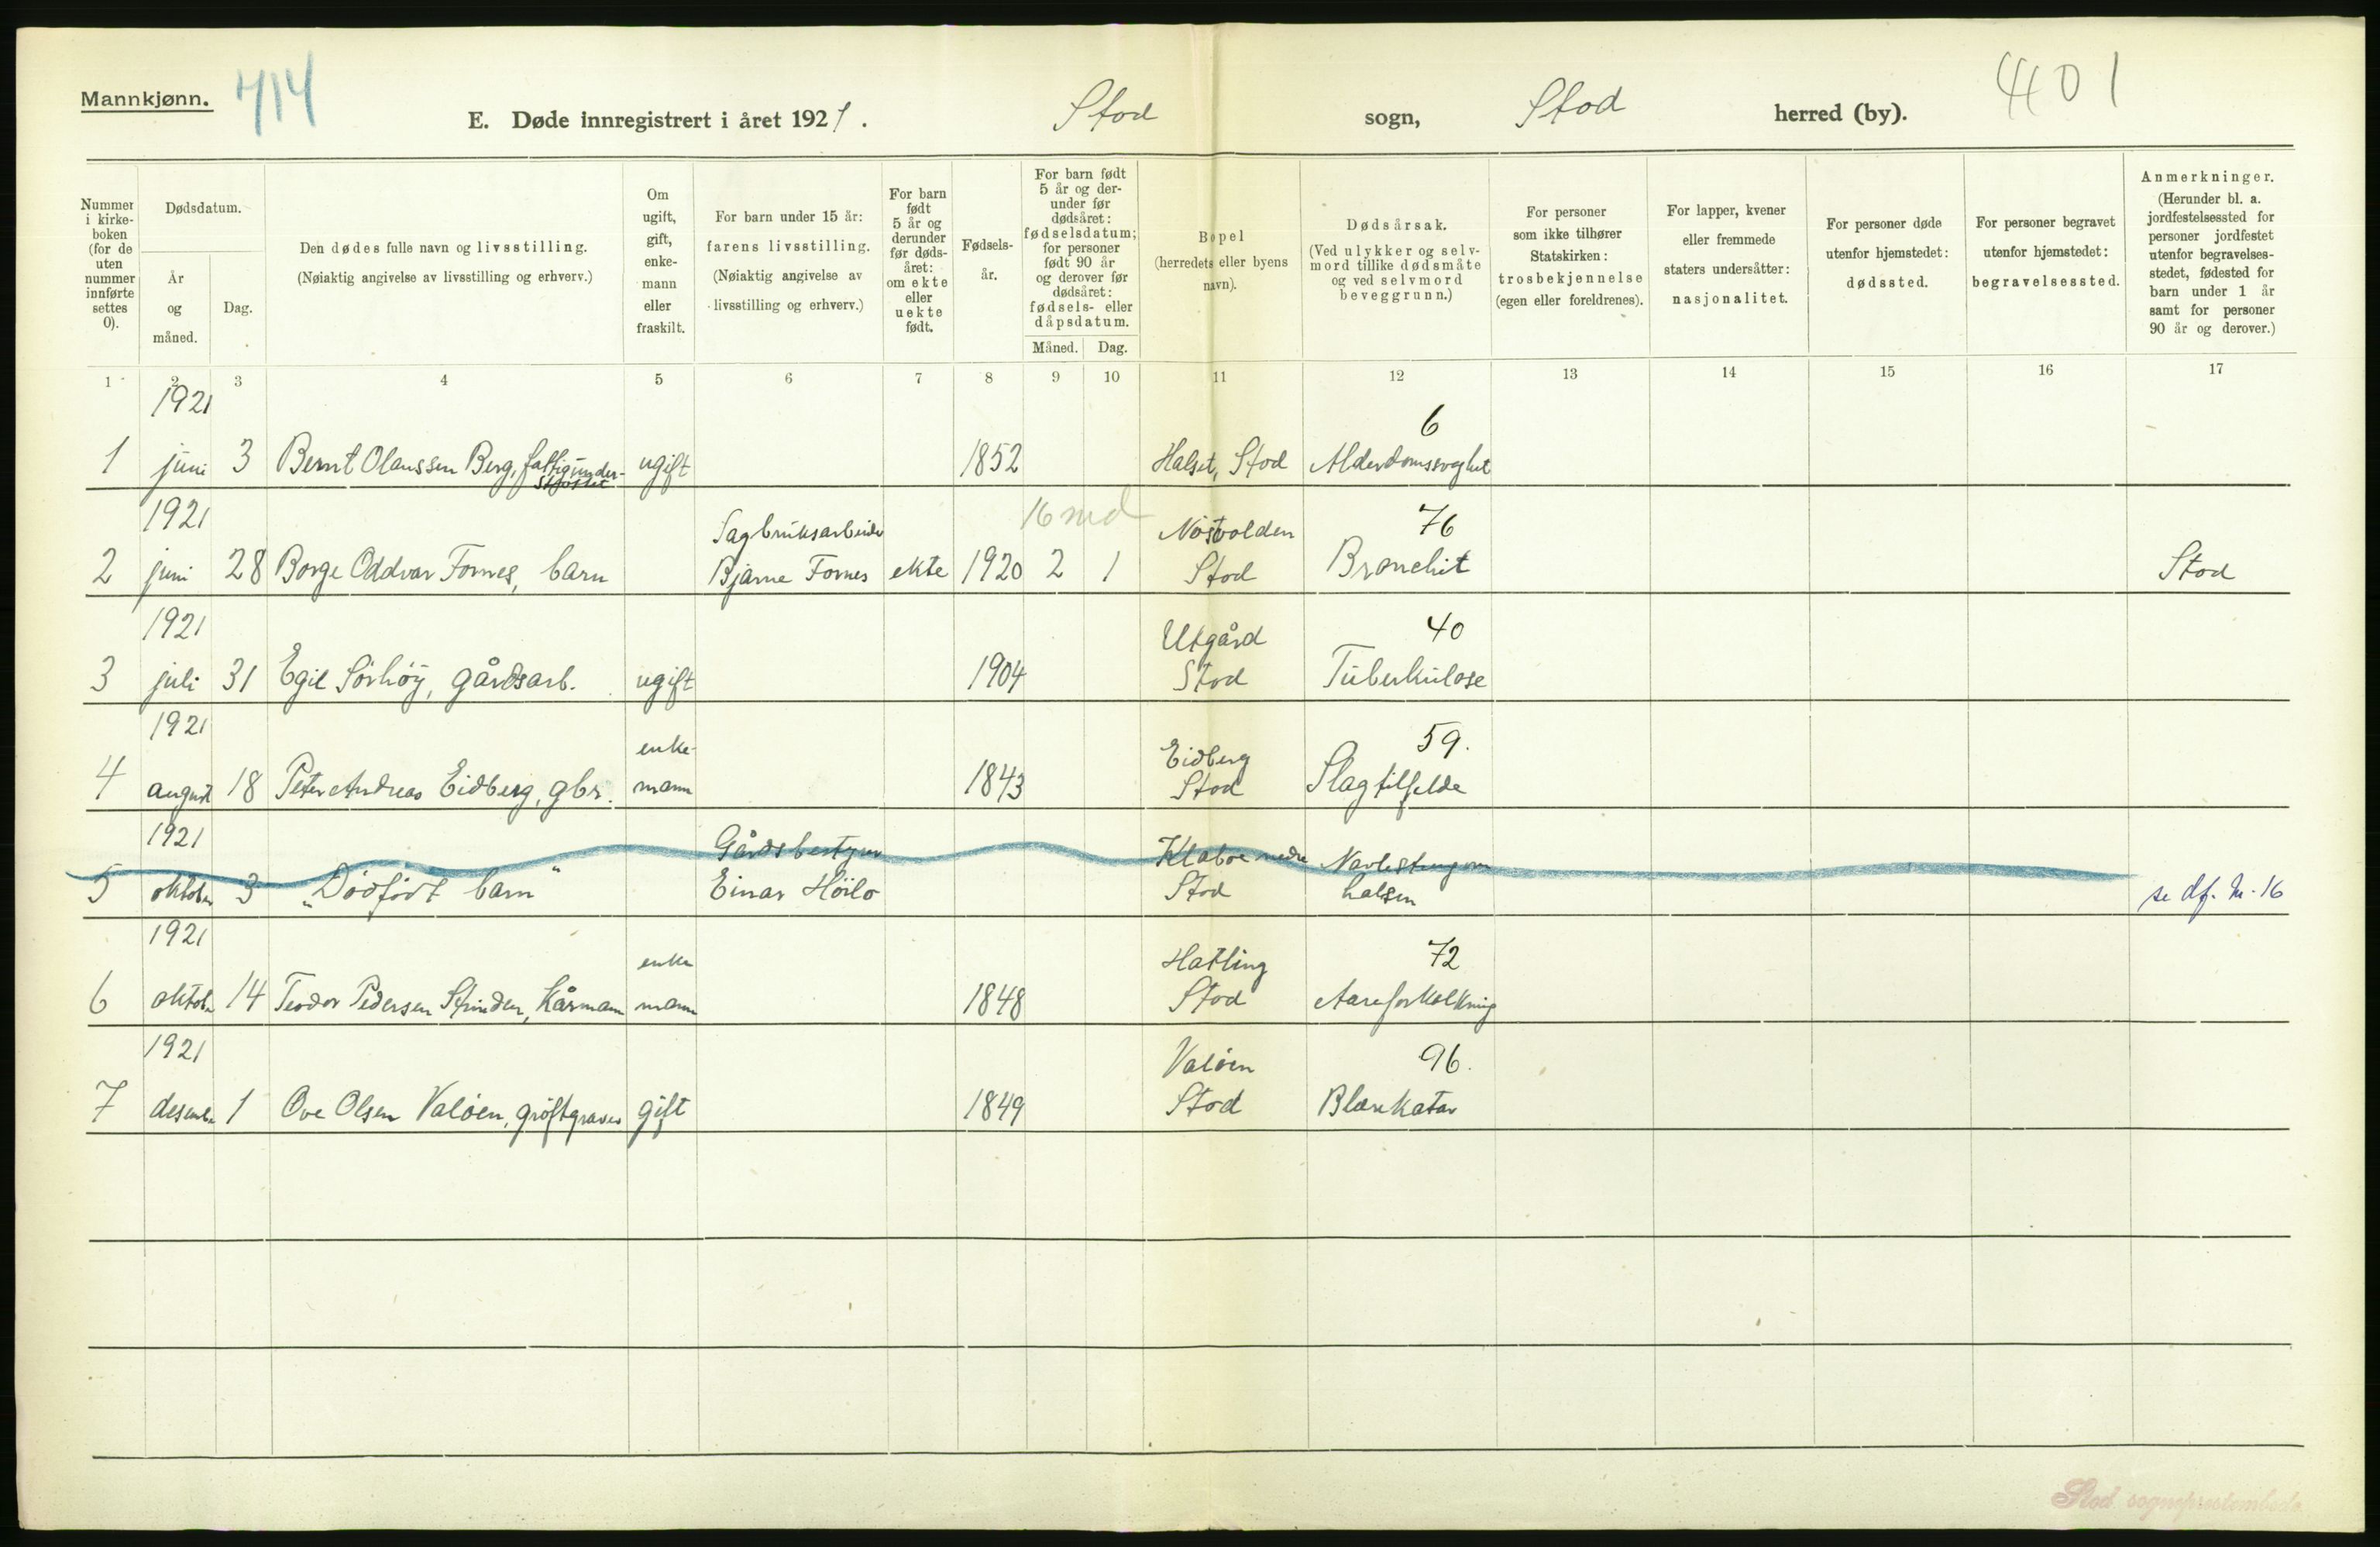 Mannkjønn.
714
E. Døde innregistrert i året 1921.
Stod sogn,
Stod herred (by).
401
Nummer i kirke-boken (for de uten nummer innførte settes 0).
Dødsdatum.
År og måned.
Dag.
Den dødes fulle navn og livsstilling.
(Nøiaktig angivelse av livsstilling og erhverv.)
Om ugift, gift, enke-mann eller fraskilt.
For barn under 15 år: farens livsstilling.
(Nøiaktig angivelse av livsstilling og erhverv.)
For barn født 5 år og derunder før døds-året: om ekte eller uekte født.
Fødsels-år.
For barn født 5 år og der-under før dødsåret: fødselsdatum; for personer født 90 år og derover før dødsåret: fødsels- eller dåpsdatum.
Måned.
Dag.
Bopel (herredets eller byens navn).
Dødsårsak.
(Ved ulykker og selv-mord tillike dødsmåte og ved selvmord beveggrunn.)
For personer som ikke tilhører Statskirken: trosbekjennelse (egen eller foreldrenes).
For lapper, kvener eller fremmede staters undersåtter: nasjonalitet.
For personer døde utenfor hjemstedet: dødssted.
For personer begravet utenfor hjemstedet: begravelsessted.
Anmerkninger.
(Herunder bl. a. jordfestelsessted for personer jordfestet utenfor begravelses-stedet, fødested for barn under 1 år samt for personer 90 år og derover.)
1 2 3 4 5 6 7 8 9 10 11 12 13 14 15 16 17
1921 6
1 juni 3 Bernt Olaussen Berg, fattigunder-støttet ugift 1852 Halset, Stod Alderdomssvaghet
1921 Sagbruksarbeider 16 md Nøstvolden 76
2 juni 28 Borge Oddvar Fornes, barn Bjarne Fornes ekte 1920 2 1 Stod Bronchit Stod
1921 Utgård 40
3 juli 31 Egil Sörhöy, gårdsarb. ugift 1904 Stod Tuberkulose
1921 enke- Eidberg 59.
4 august 18 Peter Andreas Eidberg, gbr. mann 1843 Stod Slagtilfelde
1921 Gårdsbestyrer Klaboe nedre Navlestreng om
5 oktober 3 "Dödfödt barn" Einar Höilo Stod halsen se df. nr. 16
1921 enke Hatling 72
6 oktober 14 Teodor Pedersen Strinden, Kårmann mann 1848 Stod Aareforkalkning
1921 Valöen 96.
7 desember 1 Ove Olsen Valöen, gröftgraver gift 1849 Stod Blærekatar
Stod sogneprestembede